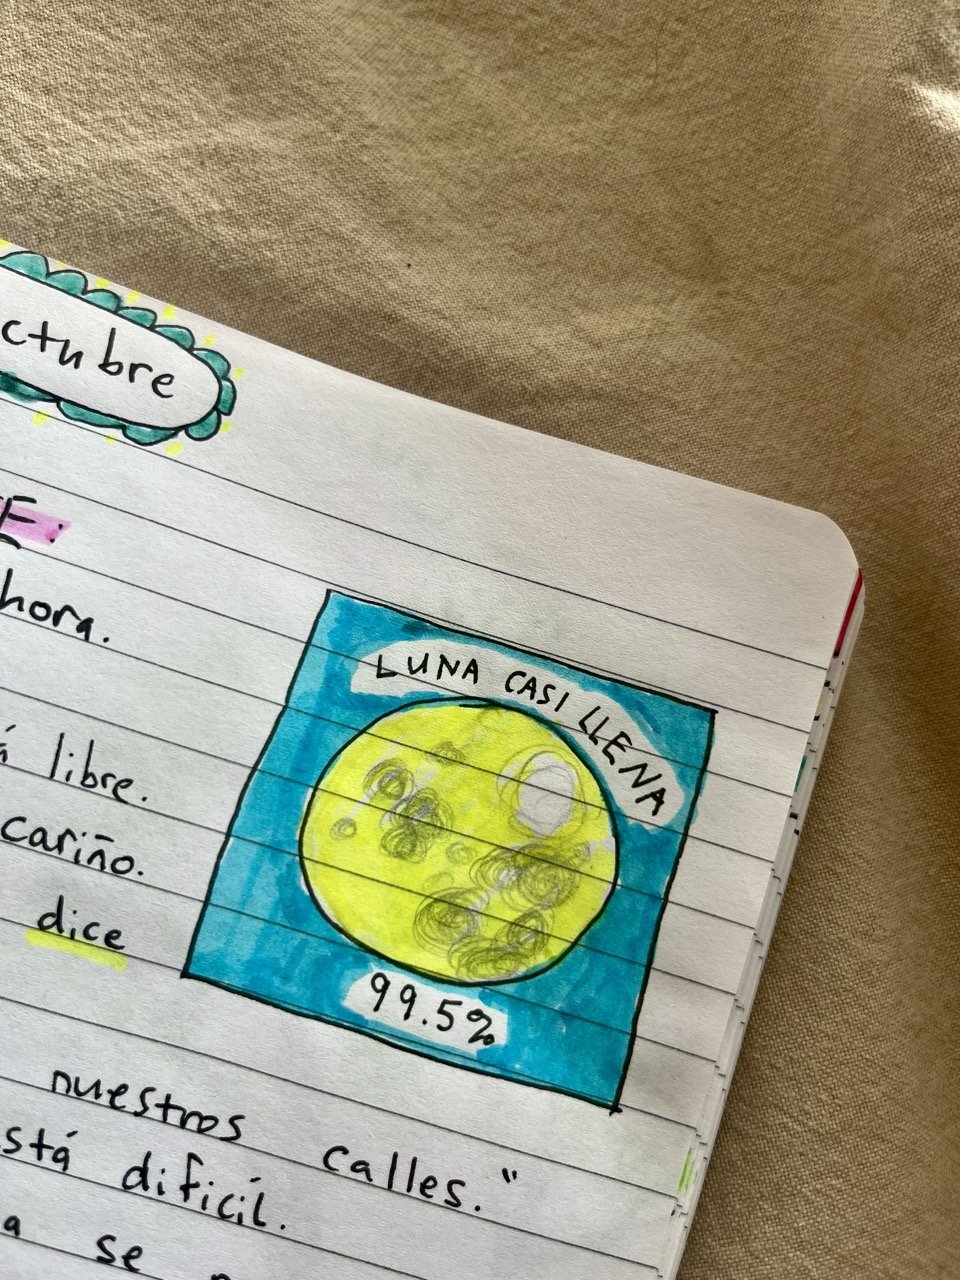 ctubre
E:
hora.
LUNA CASI LLENA
á libre.
cariño.
dice
99.5%
nuestros calles."
stá dificíl.
a se